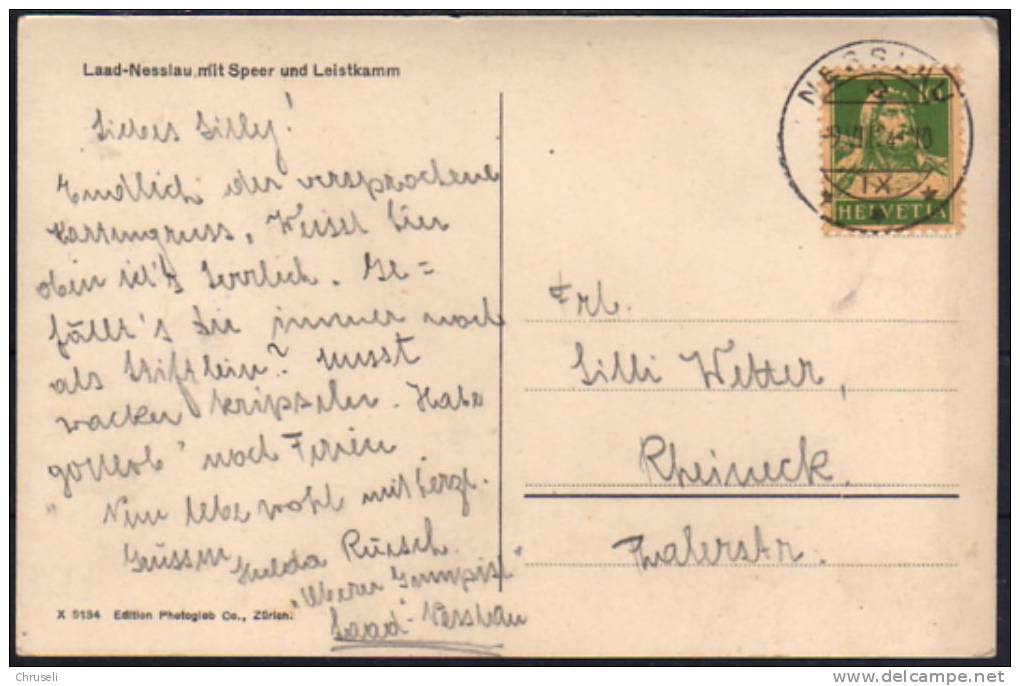 Laad-Nesslau mit Speer und Leistkamm
Liebes Lilly!
Endlich der versprochene
Kartengruss. Weisst hier
oben ist's herrlich. Ge=
fällt's Dir immer noch
als Stiftlein? musst
wacker kripseln. Habe
"gottlob" noch Ferien
Nun lebe wohl mit herzl.
Grüssen Hulda Rüesch.
"Oberer
Laad-Nesslau
X 5134 Edition Photoglob Co., Zürich.
NESSLAU
10
IX
HELVETIA
Frl.
Silli Wetter,
Rheineck.
Thalerstr.
Chruseli
www.delcampe.net